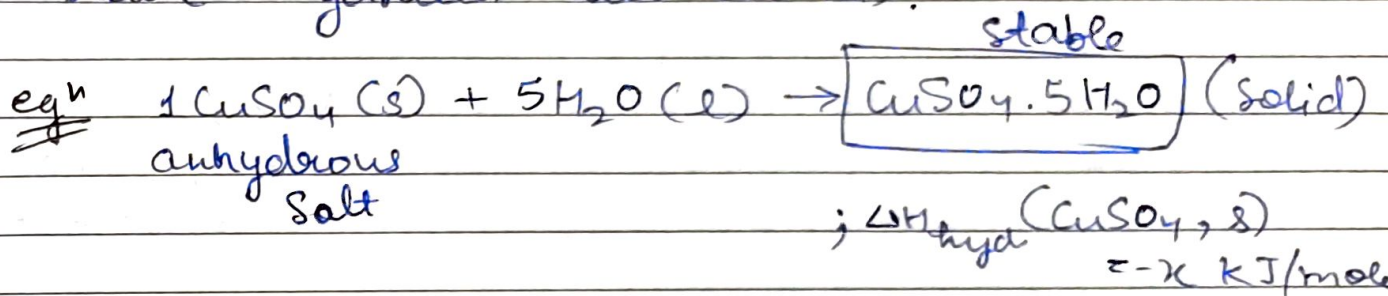 stable
eqⁿ 1 CuSO₄ (s) + 5H₂O (l) → CuSO₄.5H₂O (Solid)
anhydrous
Salt
; ΔH_hyd (CuSO₄, s)
= -x KJ/mole